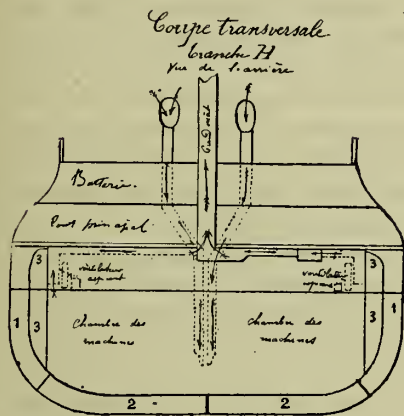 Coupe transversale
tranche H
Vue de l'arrière
Grand mât
Batterie
Pont principal
3
3
ventilateur
aspirant
ventilateur
aspirant
1
3
3
1
Chambre des
machines
Chambre des
machines
2
2